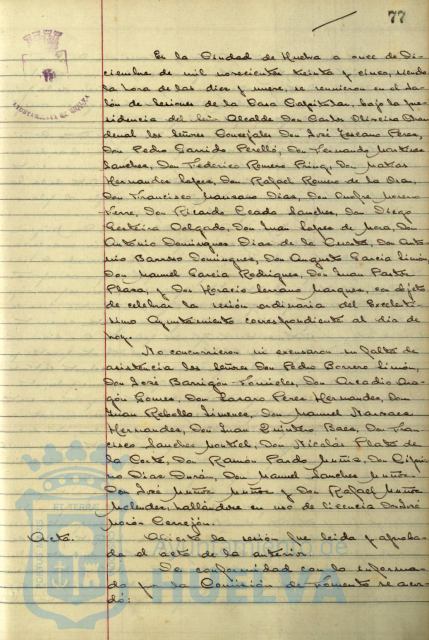 77
En la Ciudad de Huelva a once de Di-
ciembre de mil novecientos treinta y cinco, siendo
la hora de las diez y nueve, se reunieron en el Sa-
lón de Sesiones de la Casa Capitular, bajo la pre-
sidencia del Señor Alcalde Don Carlos Oliveira
los señores Concejales Don José Lozano Perez,
Don Pedro Garrido Perelló, Don Fernando Martinez
Sanchez, Don Federico Romero Don Matias
Hernandez Lopez, Don Rafael Romero de la
Don Francisco Manzano Dias, Don Onofre Moreno
Don Ricardo Sanchez, Don Diego
Delgado, Don Juan Lopez de Don
Antonio Dominguez Dias de la Don Anto-
nio Barroso Dominguez, Don Augusto Garcia Limón,
Don Manuel Garcia Rodriguez, Don Juan Pastor
Plaza, y Don Horacio Serrano Marquez, con objeto
de celebrar la sesión ordinaria del Excelentí-
simo Ayuntamiento correspondiente al dia de
hoy.
No concurrieron ni excusaron su falta de
asistencia los señores Don Pedro Borrero Limón,
Don José Barrigón Don Arcadio Ara-
gón Gomez, Don Lazaro Perez Hernandez, Don
Juan Rebollo Jimenez, Don Manuel
Hernandez, Don Juan Quintero Baez, Don Fran-
cisco Sanchez Don Nicolás Plata de
la Corte, Don Ramón Pardo Muñiz, Don Cipria-
no Dias Durán, Don Manuel Sanchez Muñoz,
Don José Muñiz Muñoz y Don Rafael Muñiz
hallándose en uso de licencia Don José
Morón Cerrejón.
Acta. Abierta la sesión fue leida y aproba-
da el acta de la anterior.
De conformidad con lo informa-
do por la Comisión de Fomento se acor-
dó:
HUELVA